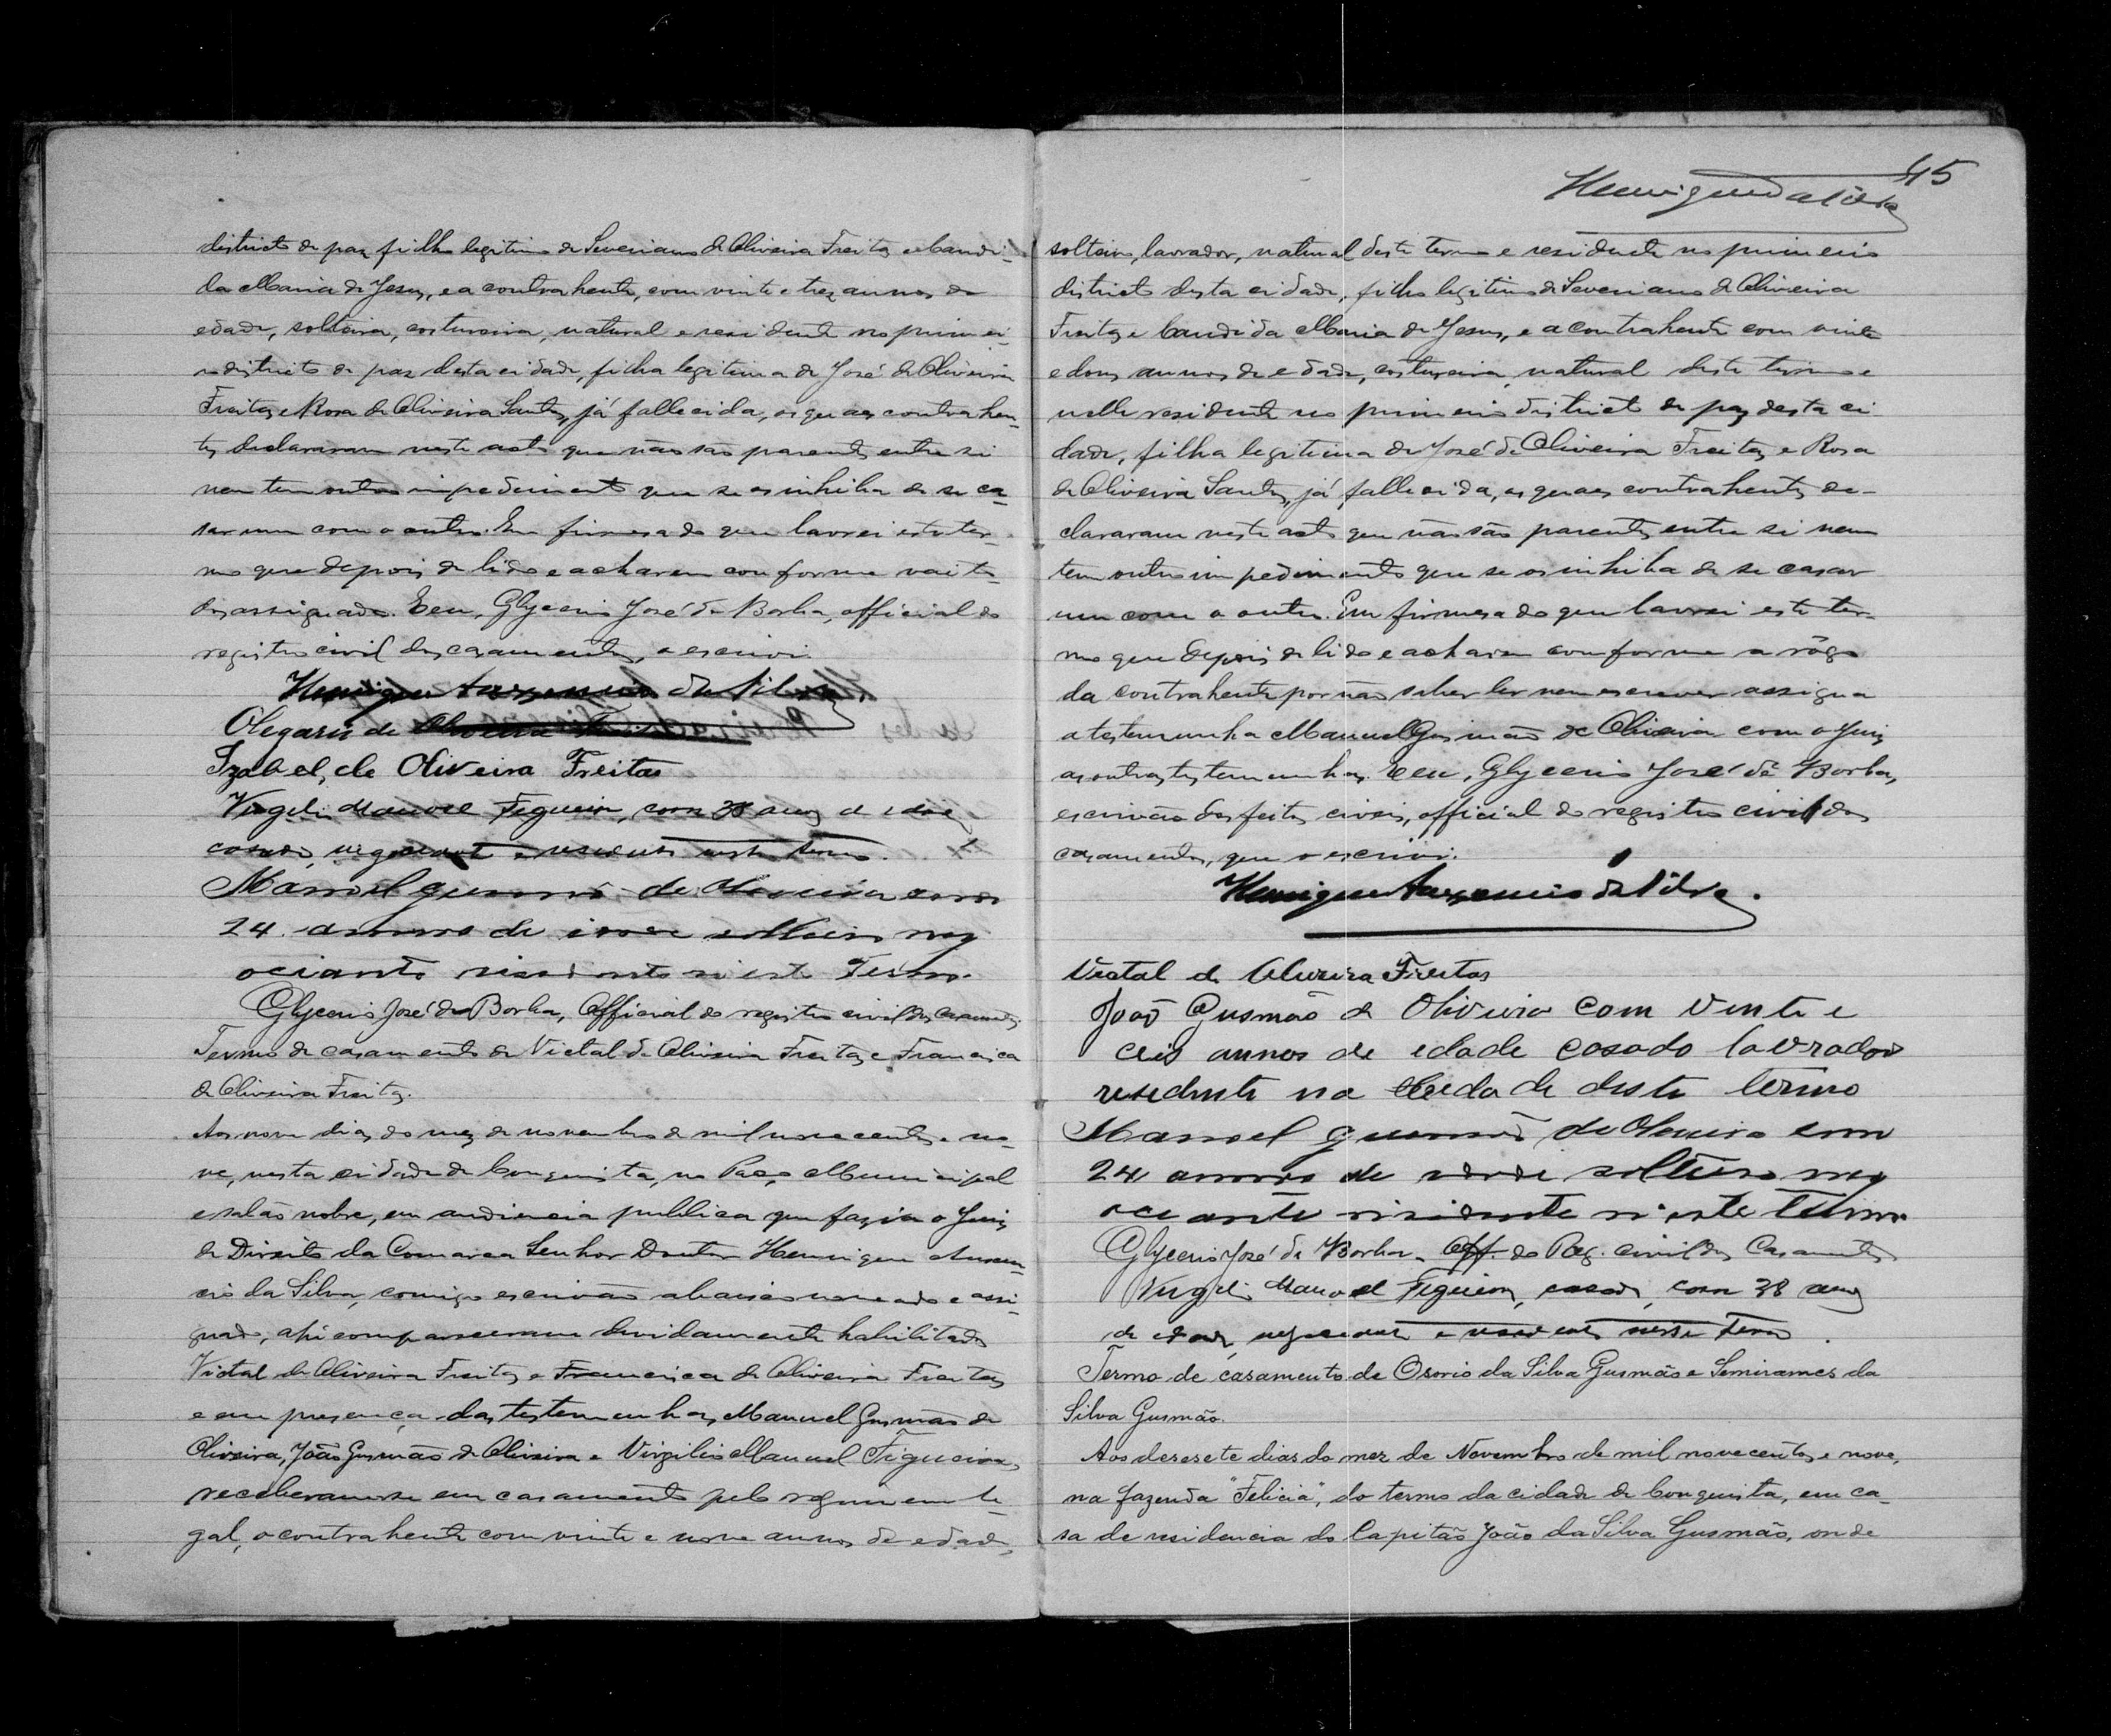 districto de paz, filho legitimo de Severiano de Oliveira Freitas e Candi-
da Maria de Jesus, e a contrahente, com vinte e trez annos de
edade, solteira, costureira, natural e residente no primei-
ro districto de paz desta cidade, filha legitima de José de Oliveira
Freitas e Rosa de Oliveira Santos, já fallecida, os quaes contrahen-
tes declararam neste acto que não são parentes entre si
nem tem outro impedimento que se os inhiba de se ca-
sar um com o outro. Em firmesa do que lavrei este ter-
mo que depois de lido e acharem conforme vai to-
dos assignado. E eu, Glycerio José da Borba, official do
registro civil dos casamentos, o escrevi.
Henrique da Silva
Olegario de Oliveira
Izabel, de Oliveira Freitas
Virgilio Manoel Figueira, com 38 anos de edade
casado, negociante e residente neste termo.
Manoel gusmão de Oliveira com
24 annos de solteiro neg
ociante n'este Termo.
Glycerio José da Borba, Official do registro civil dos Casamentos.
Termo de casamento de Victal de Oliveira Freitas e Francisca
de Oliveira Freitas.
Aos nove dias do mez de novembro de mil novecentos e no-
ve, nesta cidade de Conquista, no Paço Municipal
e salão nobre, em audiencia publica que fazia o Juiz
de Direito da Comarca Senhor Doutor Henrique
cio da Silva, comigo escrivão abaixo nomeado e assi-
gnado, ahi compareceram devidamente habilitados
Victal de Oliveira Freitas e Francisca de Oliveira Freitas
e em presença das testemunhas, Manuel Gusmão de
Oliveira, João Gusmão de Oliveira e Virgilio Manuel Figueira,
receberam-se em casamento pelo regimem le-
gal, o contrahente com vinte e nove annos de edade,
45
Henrique da Silva
solteiro, lavrador, natural deste termo e residente no primeiro
districto desta cidade, filho legitimo de Severiano de Oliveira
Freitas e Candida Maria de Jesus, e a contrahente com vinte
e dous annos de edade, costureira, natural deste termo e
nelle residente no primeiro districto de paz desta ci-
dade, filha legitima de José de Oliveira Freitas e Rosa
de Oliveira Santos, já fallecida, os quaes contrahentes de-
clararam neste acto que não são parentes entre si nem
tem outro impedimento que se os inhiba de se casar
um com o outro. Em firmesa do que lavrei este ter-
mo que depois de lido e acharem conforme a rôgo
da contrahente por não saber ler nem escrever assigna
a testemunha Manuel Gusmão de Oliveira com o Juiz
as outras testemunhas. E eu, Glycerio José da Borba,
escrivão dos feitos civeis, official do registro civil dos
casamentos, que o escrevi.
Henrique da Silva.
Victal de Oliveira Freitas
João Gusmão de Oliveira com vinte e
ceis annos de edade casado lavrador
resedente na deste termo
Manoel gusmão de Oliveira com
24 annos de solteiro neg
ociante risidente n'este termo
Glycerio José da Borba, Off. do Reg. civil dos Casamentos
Virgilio Manoel Figueira, casado, com 38 anos
de edade, negociante e residente nesse termo.
Termo de casamento de Osorio da Silva Gusmão e Semirames da
Silva Gusmão.
Aos desesete dias do mez de Novembro de mil novecentos e nove,
na fazenda "Felicia", do termo da cidade de Conquista, em ca-
sa de residencia do Capitão João da Silva Gusmão, onde